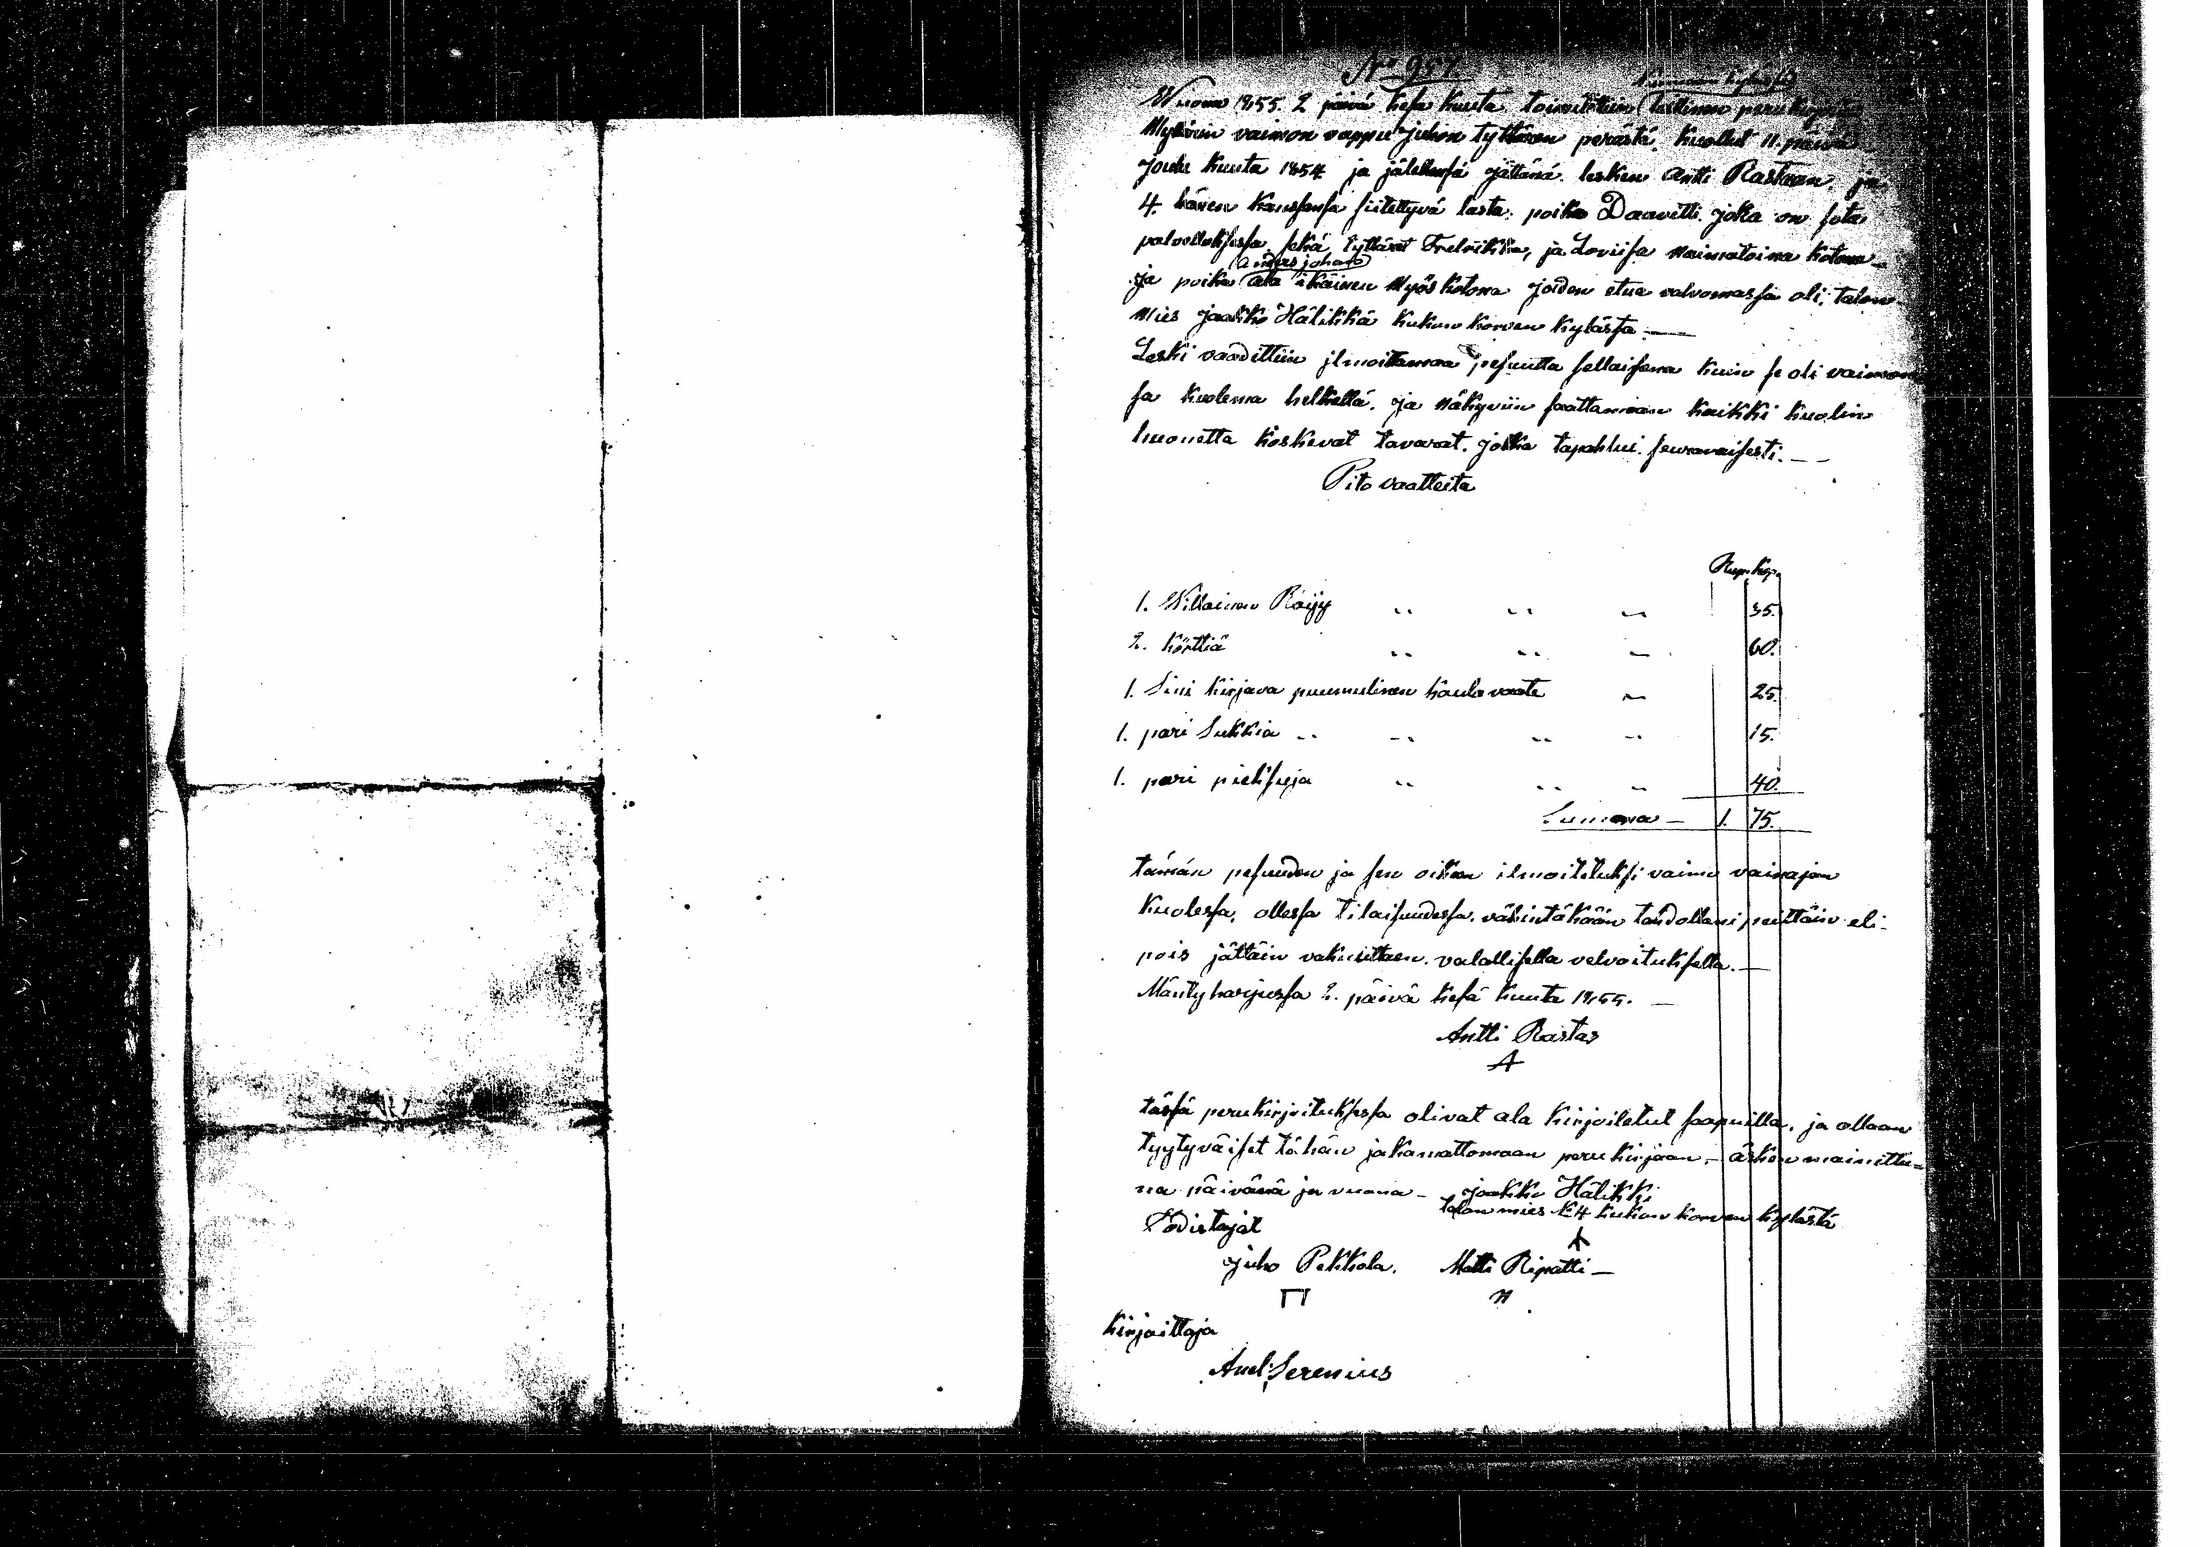 No 957.
kylässä
Wuona 1855. 2 päivä kesä kuuta toimitettiin laillinen peru
Mylärin vaimon vappu juhon tyttären perästä. kuollut 11. päivä
Joulu kuuta 1854 ja jälellensä jättänä. lesken Antti Rastaan. ja
4. hänen kanssansa siitettyvä lasta. poika Daavitti. joka on sota
palvelluksessa. sekä tyttäret Fredrikka, ja Loviisa Naimatoina kotona-
Anders johan
ja poika ala ikäinen Myös kotona joiden etua valvomassa oli. talon
Mies Jaakko Hälikkä kukon korven kylästä.—
Leski vaadittiin ilmoittamaa pesuutta sellaisena kuin se oli vaimon
sa kuolema hetkellä. ja Näkyviin saattamaan kaikki kuolin
huonetta koskevat tavarat. jotka tapahtui seuravaisesti.—
Pito vaatteita
Rup. Kop.
1. Willainen Röijy .. .. .. 35.
2. körttiä .. .. .. 60.
1. Sini kirjava puumulinen kaula vaate .. 25.
1. pari Sukkia .. .. .. .. 15.
1. pari pieksuja .. .. .. 40.
Summa — 1. 75.
tämän pesuuden ja sen oikean ilmoitetuksi vaimo vainajan
kuolessa, ollessa tilaisuudessa. vähintäkään tahdollani peittäin eli-
pois jättäin vakuuttaen. valallisella velvoituksella.—
Mäntyharjussa 2. päivä kesä kuuta 1855. —
Antti Rastas
A
tässä perukirjoituksessa olivat ala kirjoitetut saapuilla. ja ollaan
tyytyväiset tähän jakamattomaan peru kirjaan.— äsken mainittu=
na päivänä ja vuona — jaakko Hälikki
talon mies K4 kukon korven kylästä
Todistajat
juho Pekkola. Matti Ripatti —
П n
kirjoittaja
Axel Serenius